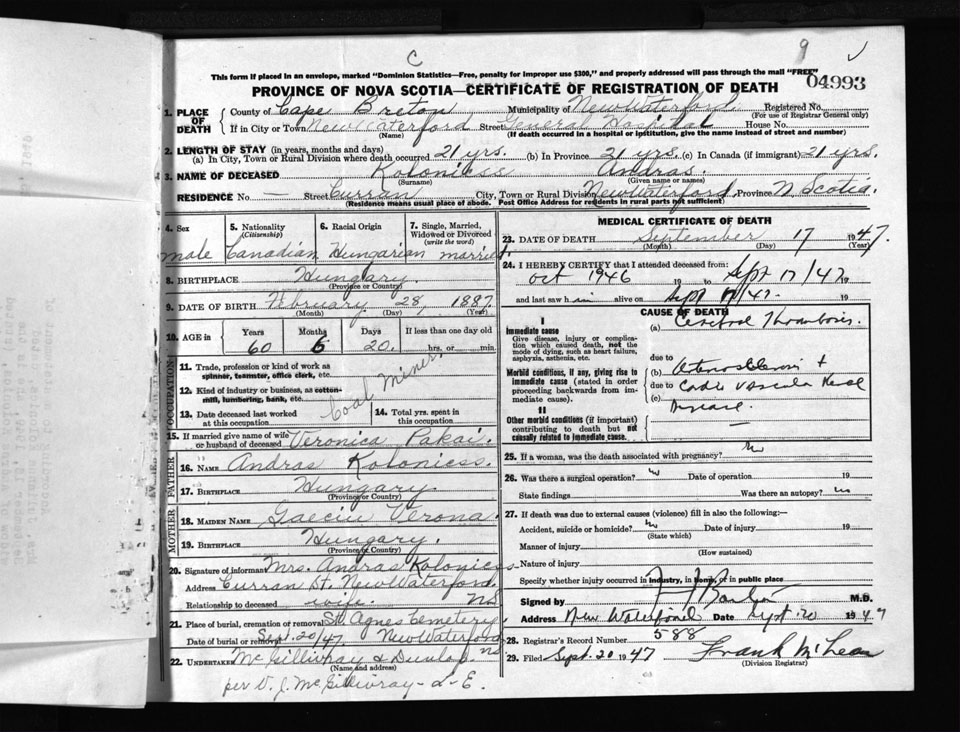 C
9
This form if placed in an envelope, marked "Dominion Statistics—Free, penalty for improper use $300," and properly addressed will pass through the mail "FREE"
04993
PROVINCE OF NOVA SCOTIA—CERTIFICATE OF REGISTRATION OF DEATH
1. PLACE OF DEATH County of Cape Breton Municipality of New Waterford Registered No.
(For use of Registrar General only)
If in City or Town New Waterford Street General Hospital House No.
(Name) (If death occurred in a hospital or institution, give the name instead of street and number)
2. LENGTH OF STAY (in years, months and days)
(a) In City, Town or Rural Division where death occurred 21 yrs. (b) In Province 21 yrs. (c) In Canada (if immigrant) 21 yrs.
3. NAME OF DECEASED Koloniess Andras.
(Surname) (Given name or names)
RESIDENCE No — Street Curran City, Town or Rural Division New Waterford, Province N Scotia.
(Residence means usual place of abode. Post Office Address for residents in rural parts not sufficient)
4. Sex 5. Nationality (Citizenship) 6. Racial Origin 7. Single, Married, Widowed or Divorced (write the word)
male Canadian Hungarian married
8. BIRTHPLACE Hungary.
(Province or Country)
9. DATE OF BIRTH February 28, 1887.
(Month) (Day) (Year)
10. AGE in Years Months Days If less than one day old
60 6 20. hrs. or min.
OCCUPATION
11. Trade, profession or kind of work as spinner, teamster, office clerk, etc.
12. Kind of industry or business, as cotton-mill, lumbering, bank, etc.
Coal Miner.
13. Date deceased last worked at this occupation
14. Total yrs. spent in this occupation
15. If married give name of wife or husband of deceased Veronica Pakai.
FATHER
16. NAME Andras Koloniess.
17. BIRTHPLACE Hungary.
(Province or Country)
MOTHER
18. MAIDEN NAME Verona.
19. BIRTHPLACE Hungary.
(Province or Country)
20. Signature of informant Mrs. Andras Koloniess
Address Curran St. New Waterford.
Relationship to deceased wife. NS
21. Place of burial, cremation or removal St. Agnes Cemetery
Date of burial or removal Sept. 20/47 New Waterford
22. UNDERTAKER McGillivray & Dunlop. NS
(Name and address)
per V. J. McGillivray - L - E.
MEDICAL CERTIFICATE OF DEATH
23. DATE OF DEATH September 17 1947.
(Month) (Day) (Year)
24. I HEREBY CERTIFY that I attended deceased from:
Oct 1946 19 to Sept 17/47. 19
and last saw him alive on Sept 17/47. 19
CAUSE OF DEATH
I
Immediate cause
Give disease, injury or complication which caused death, not the mode of dying, such as heart failure, asphyxia, asthenia, etc.
(a) Cerebral Thrombosis.
due to
Morbid conditions, if any, giving rise to immediate cause (stated in order proceeding backwards from immediate cause).
(b) Arteriosclerosis +
due to Cardio vascular Renal
(c) Disease.
II
Other morbid conditions (if important) contributing to death but not causally related to immediate cause.
—
25. If a woman, was the death associated with pregnancy? no
26. Was there a surgical operation? no Date of operation 19
State findings Was there an autopsy? no
27. If death was due to external causes (violence) fill in also the following:—
Accident, suicide or homicide? no Date of injury 19
(State which)
Manner of injury
(How sustained)
Nature of injury
Specify whether injury occurred in industry, in home, or in public place
Signed by M.D.
Address New Waterford Date Sept 20 1947
28. Registrar's Record Number 588
29. Filed Sept. 20 1947 Frank McLean
(Division Registrar)